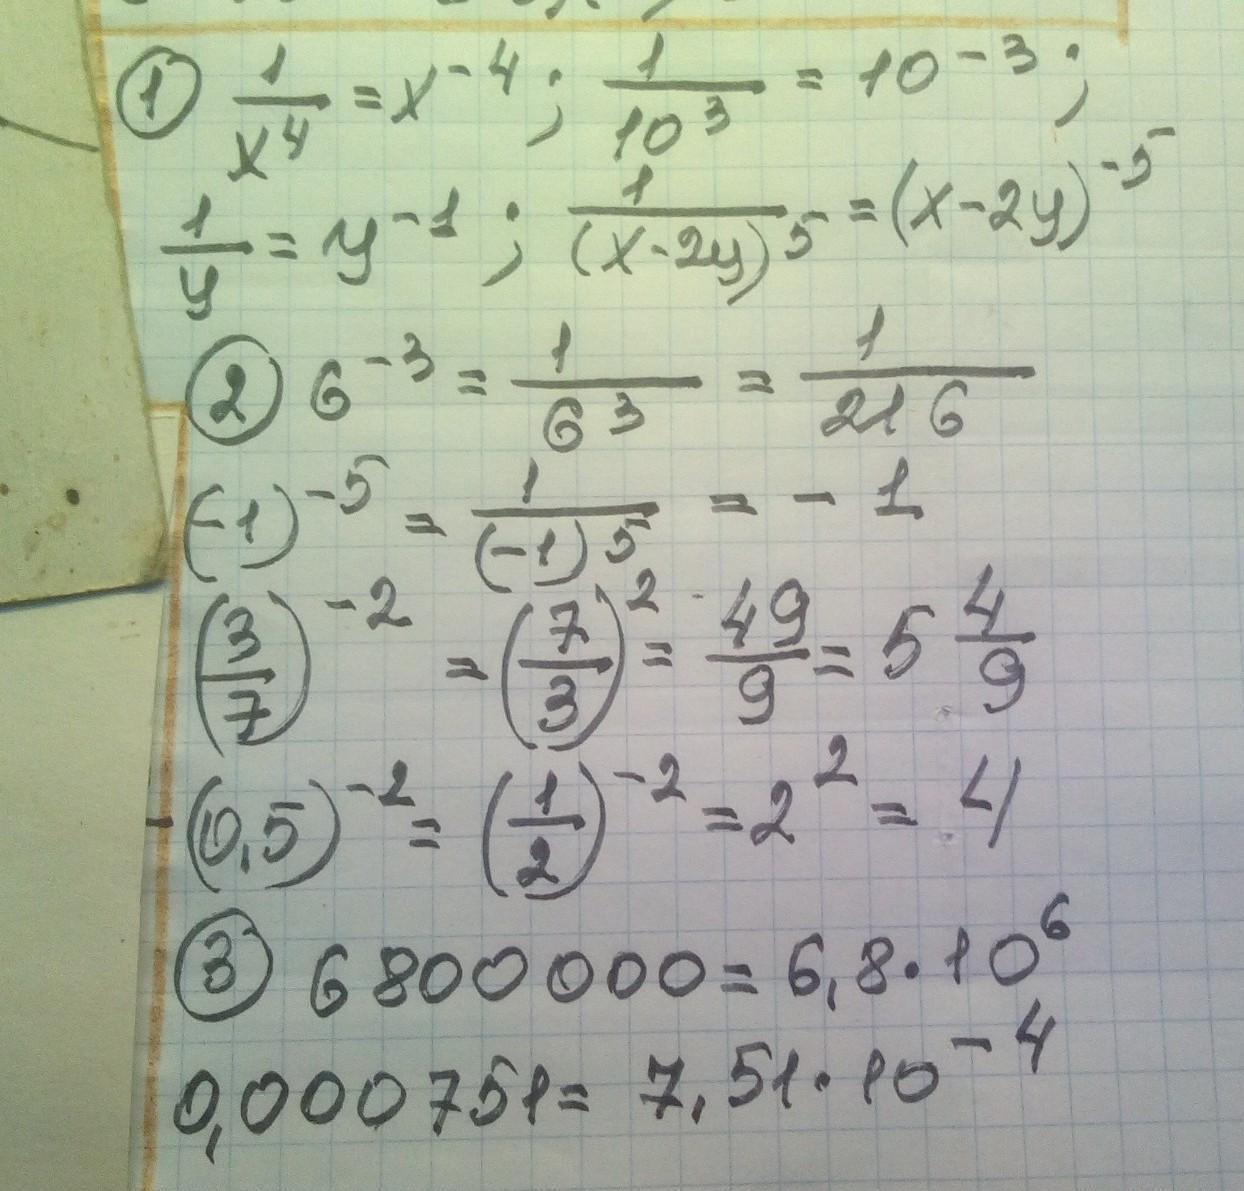 ① 1/x⁴ = x⁻⁴; 1/10³ = 10⁻³;
1/y = y⁻¹; 1/(x-2y)⁵ = (x-2y)⁻⁵
② 6⁻³ = 1/6³ = 1/216
(-1)⁻⁵ = 1/(-1)⁵ = -1
(3/7)⁻² = (7/3)² = 49/9 = 5 4/9
(0,5)⁻² = (1/2)⁻² = 2² = 4
③ 6800000 = 6,8·10⁶
0,000751 = 7,51·10⁻⁴